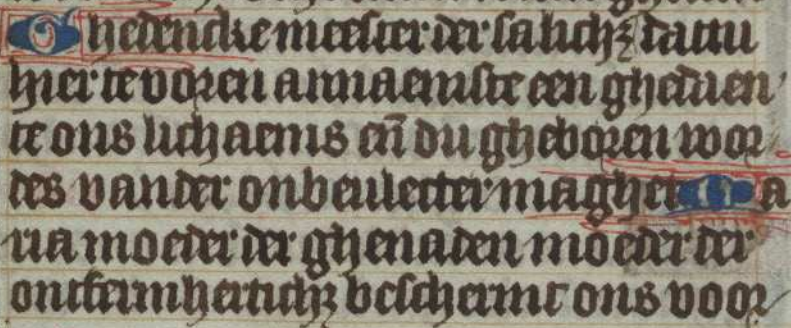 Ghedencke meester der salicheꝫ dattu
hier te voren annaemste een ghedaen
te ons lichaems en̄ du gheboren wor
des vander onbeulecter maghet Ma
ria moeder der ghenaden moeder der
ontfermherticheꝫ beschermt ons voor